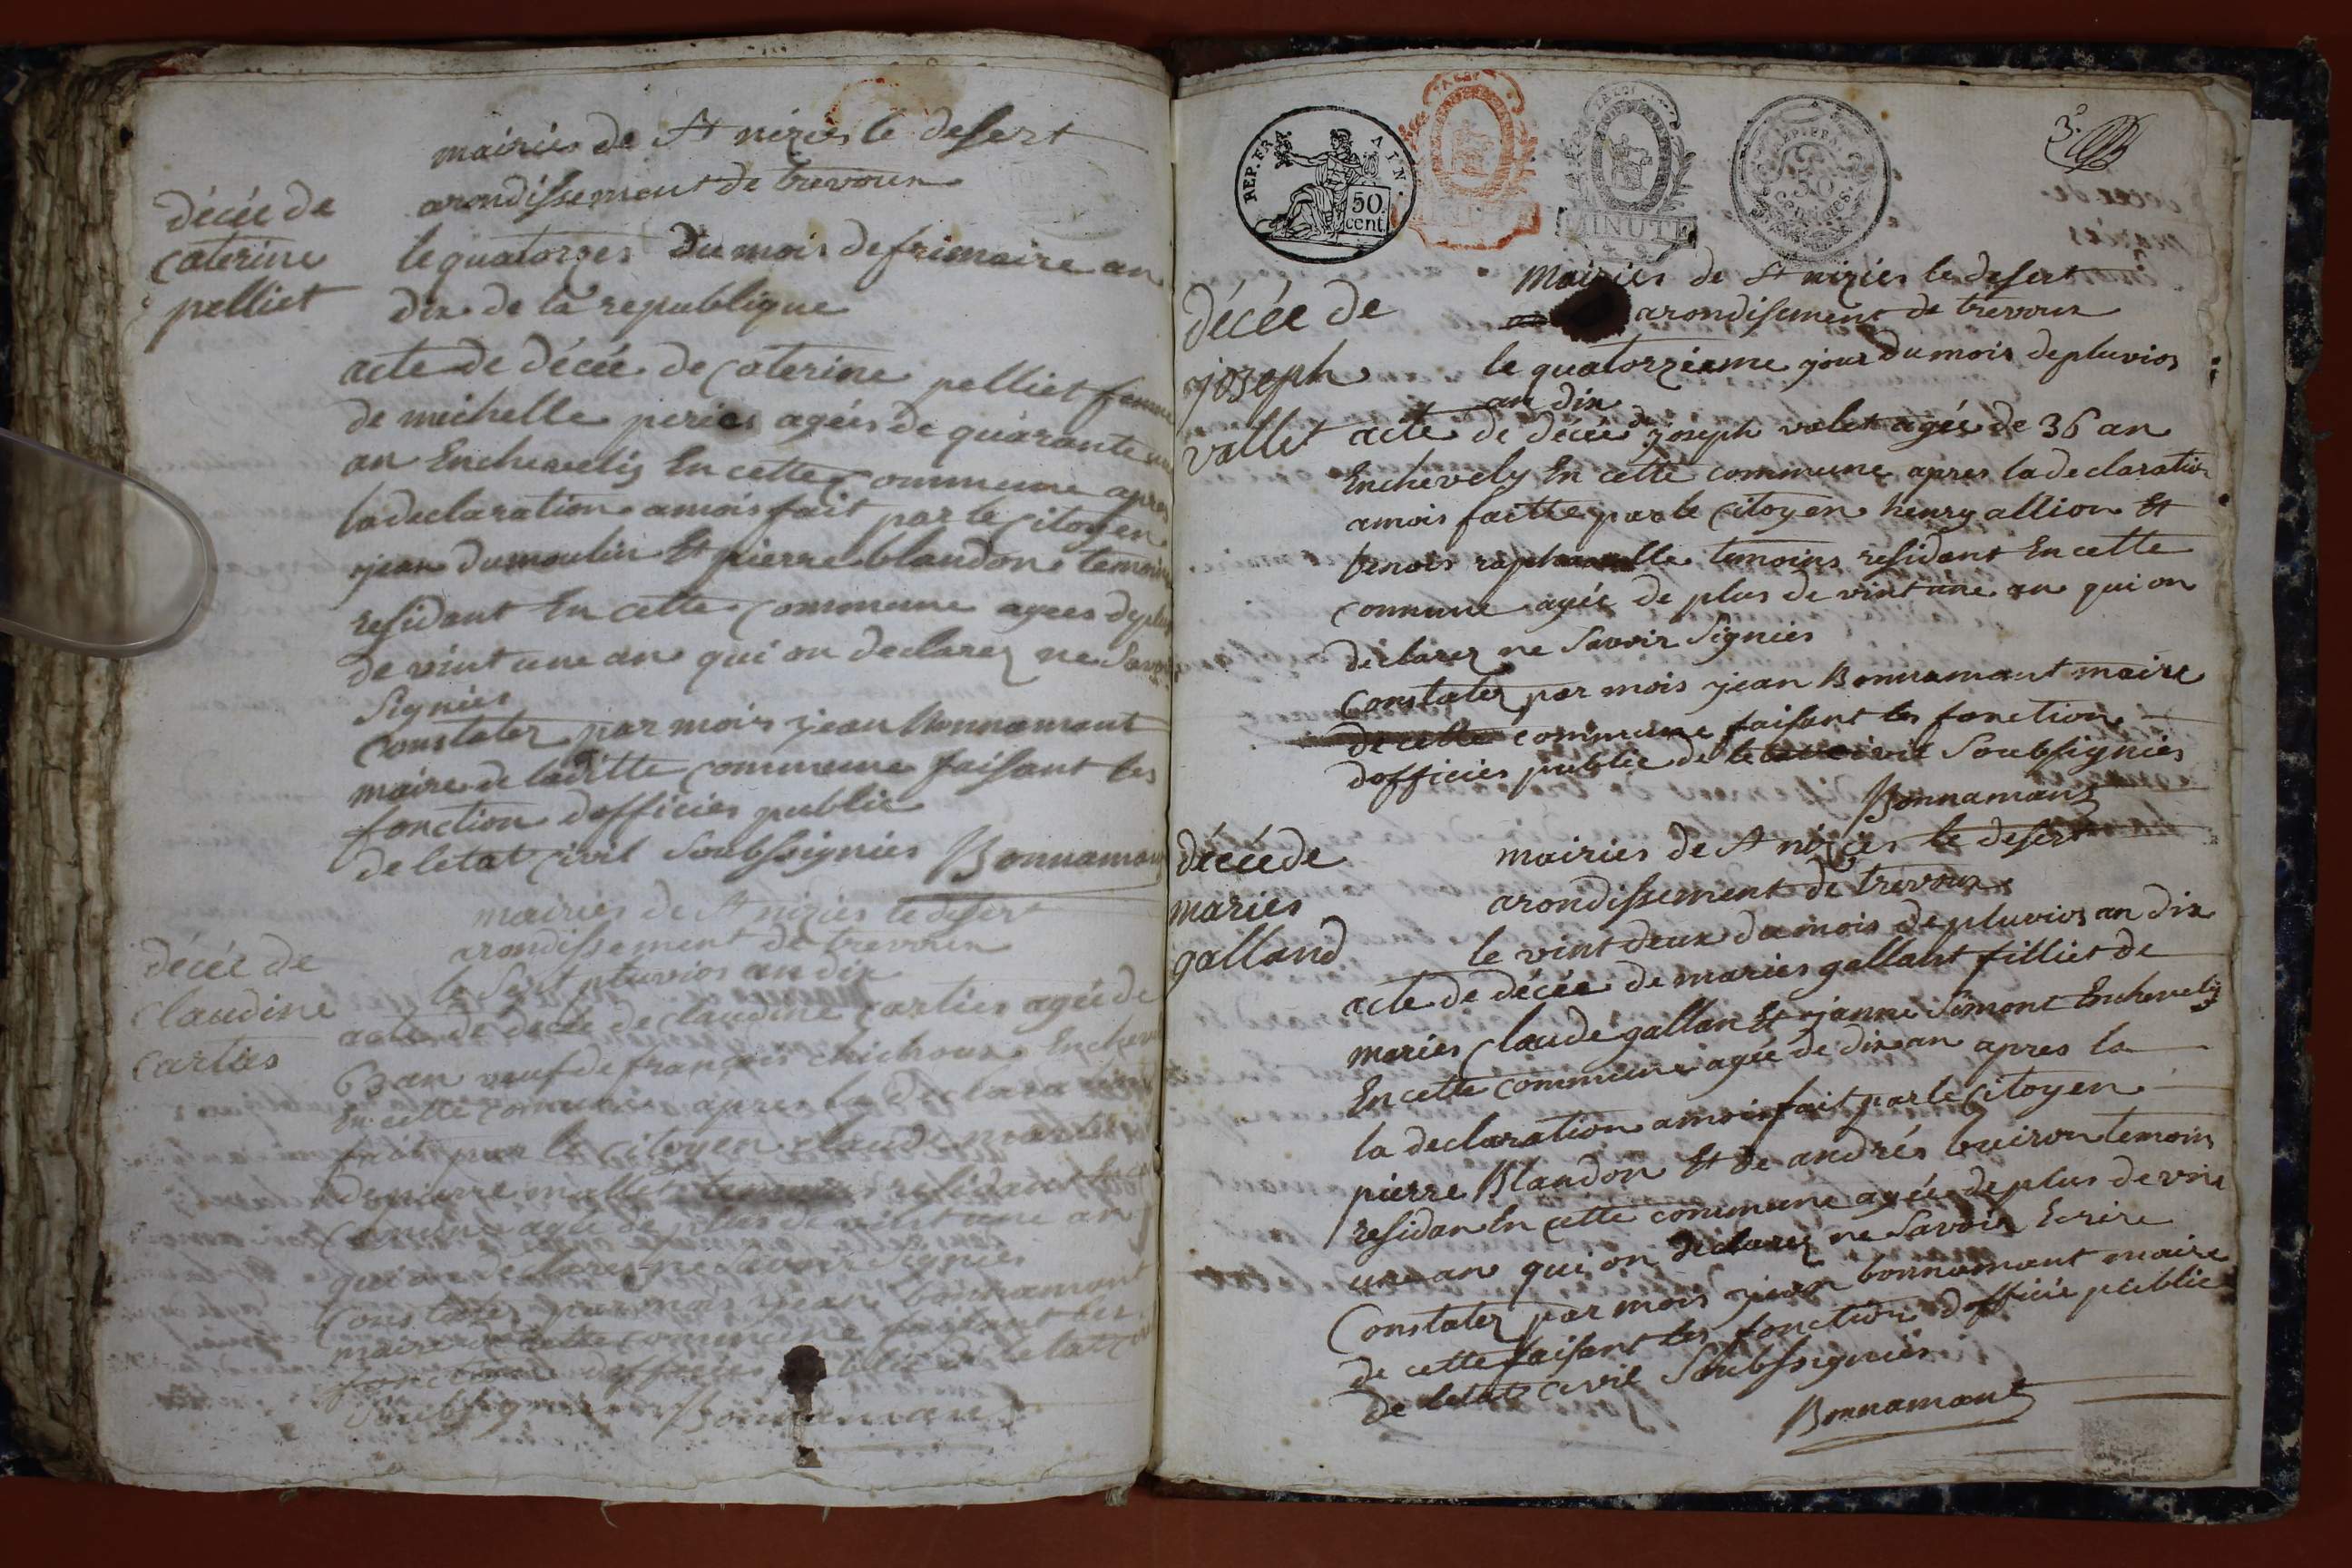 mairies de St nizies le desert
arondissement de trevoux
décée de
caterine
pelliet
le quatorzes du mois de frimaire an
dix de la republique
acte de décée de caterine pelliet femme
de michelle peries agées de quarante
an Enchevelis En cette commune apres
la declaration amois fait par le citoyen
jean dumoulin Et pierre blandon temoins
residant En cette commune agees de plus
de vint une an qui on declarez ne Savoir
Signies
Constatez par mois jean Bonnamant
maire de laditte commune faisant les
fonction dofficies public
de letat civil Soubssignies Bonnamant
mairies de St nizies le desert
arondissement de trevoux
décée de
Claudine
Carties
le Sept pluvios an dix
acte de décée de Claudine Carties agée de
63 an veuf de françois chichoux Encheve
En cette comune apres la declaration
fait par le citoyen claude
de pierre mallet temoins residant En
Comune agée de plus de vint une an
qui on declarez ne Savoir Signies
Constatez par mois jean bonnamant
maire de cette commune faisant les
fonction dofficies public de letat
Soubssignies Bonnamant
REP. FRA. 50 cent.
MINUTE
MINUTE
REP. FRA. 50 centimes
3.
Mairies de St nizies le desert
arondisement de trevoux
décée de
joseph
vallet
le quatorzieme jour du mois de pluvios
an dix
acte de décée de joseph valet agée de 36 an
Enchevely En cette commune apres la declaration
amois faitte par le citoyen henry allion Et
benois temoins residant En cette
commune agée de plus de vint une an qui on
declarez ne Savoir Signies
Constatez par mois jean Bonnamant maire
de cette commune faisant les fonction
dofficies public de civil Soubsignies
Bonnamant
décée de
maries
galland
mairies de St nizies le desert
arondissement de trevoux
le vint deux du mois de pluvios an dix
acte de décée de maries gallant filliet de
maries Claude gallan Et janne Simont Enchevelis
En cette commune agée de dix an apres la
la declaration amois fait par le Citoyen
pierre Blandon Et de andrés buiron temoins
residan En cette commune agée de plus de vint
une an qui on declarez ne Savoir Ecrire
Constatez par mois jean bonnamant maire
de cette faisant les fonction dofficié public
de letat civil Soubssignies
Bonnamant